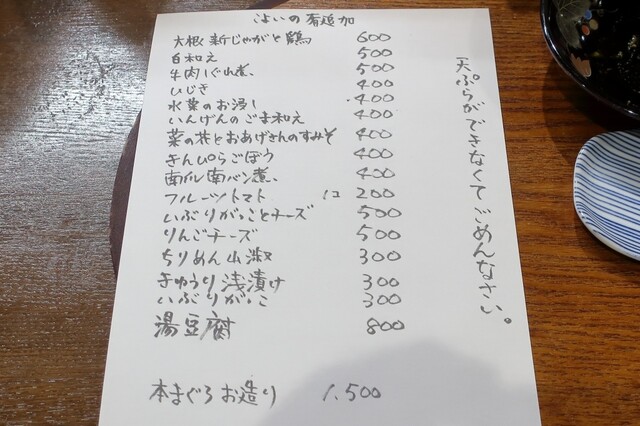 こよいの肴追加
大根 新じゃがと鶏 600
白和え 500
牛肉しぐれ煮 500
ひじき 400
水菜のお浸し 400
いんげんのごま和え 400
菜の花とおあげさんのすみそ 400
きんぴらごぼう 400
南瓜南バン煮 400
フルーツトマト 1コ 200
いぶりがっことチーズ 500
りんごチーズ 500
ちりめん山椒 300
きゅうり浅漬け 300
いぶりがっこ 300
湯豆腐 800
本まぐろお造り 1,500
天ぷらができなくてごめんなさい。